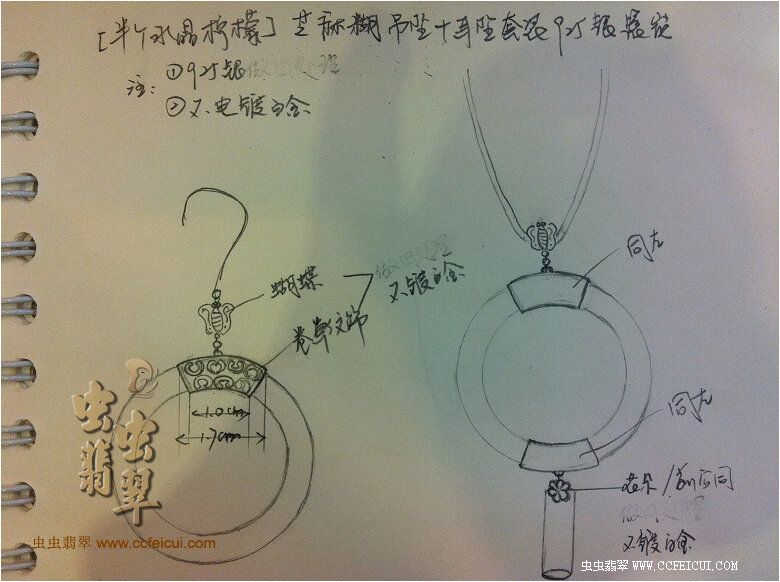 [半个水晶柠檬] 芝麻糊吊坠+耳坠套装925银镶嵌
注: ①925银做旧处理
②不电镀白金
同左
做旧处理
不镀白金
蝴蝶
卷草文饰
1.0cm
1.7cm
同左
花朵/前后同
做旧处理
不镀白金
虫虫翡翠
虫虫翡翠 www.ccfeicui.com
虫虫翡翠 WWW.CCFEICUI.COM